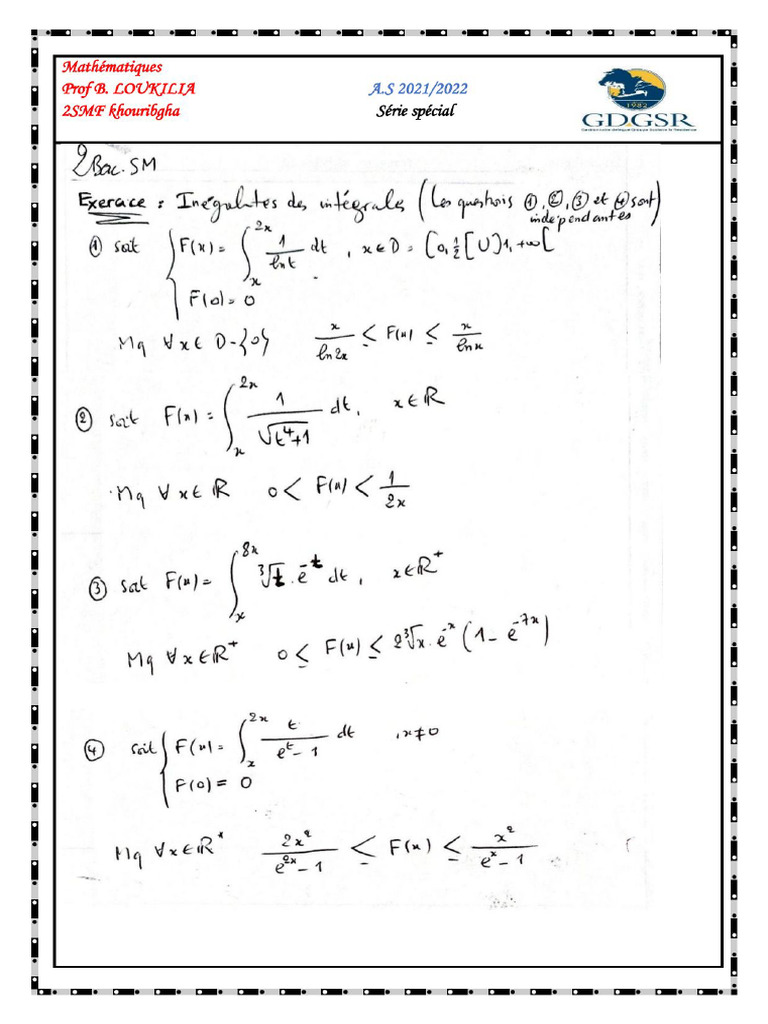 Mathématiques
Prof B. LOUKILIA A.S 2021/2022
2SMF khouribgha Série spécial
1982
GDGSR
2Bac.SM
Exercice : Inégalités des intégrales (Les questions ①, ②, ③ et ④ sont indépendantes)
① soit { F(x) = ∫_x^{2x} 1/ln t dt , x∈D = [0, 1/2[ U ]1, +∞[
F(0) = 0
Mq ∀x∈ D-{0} x/ln2x ≤ F(x) ≤ x/lnx
② soit F(x) = ∫_x^{2x} 1/√(t⁴+1) dt, x∈ℝ
Mq ∀x∈ℝ 0 < F(x) < 1/2x
③ soit F(x) = ∫_x^{8x} ³√t . e^{-t} dt, x∈ℝ⁺
Mq ∀x∈ℝ⁺ 0 ≤ F(x) ≤ 2³√x . e^{-x} (1 - e^{-7x})
④ soit { F(x) = ∫_x^{2x} t/(e^t - 1) dt , x≠0
F(0) = 0
Mq ∀x∈ℝ* 2x²/(e^{2x} - 1) ≤ F(x) ≤ x²/(e^x - 1)